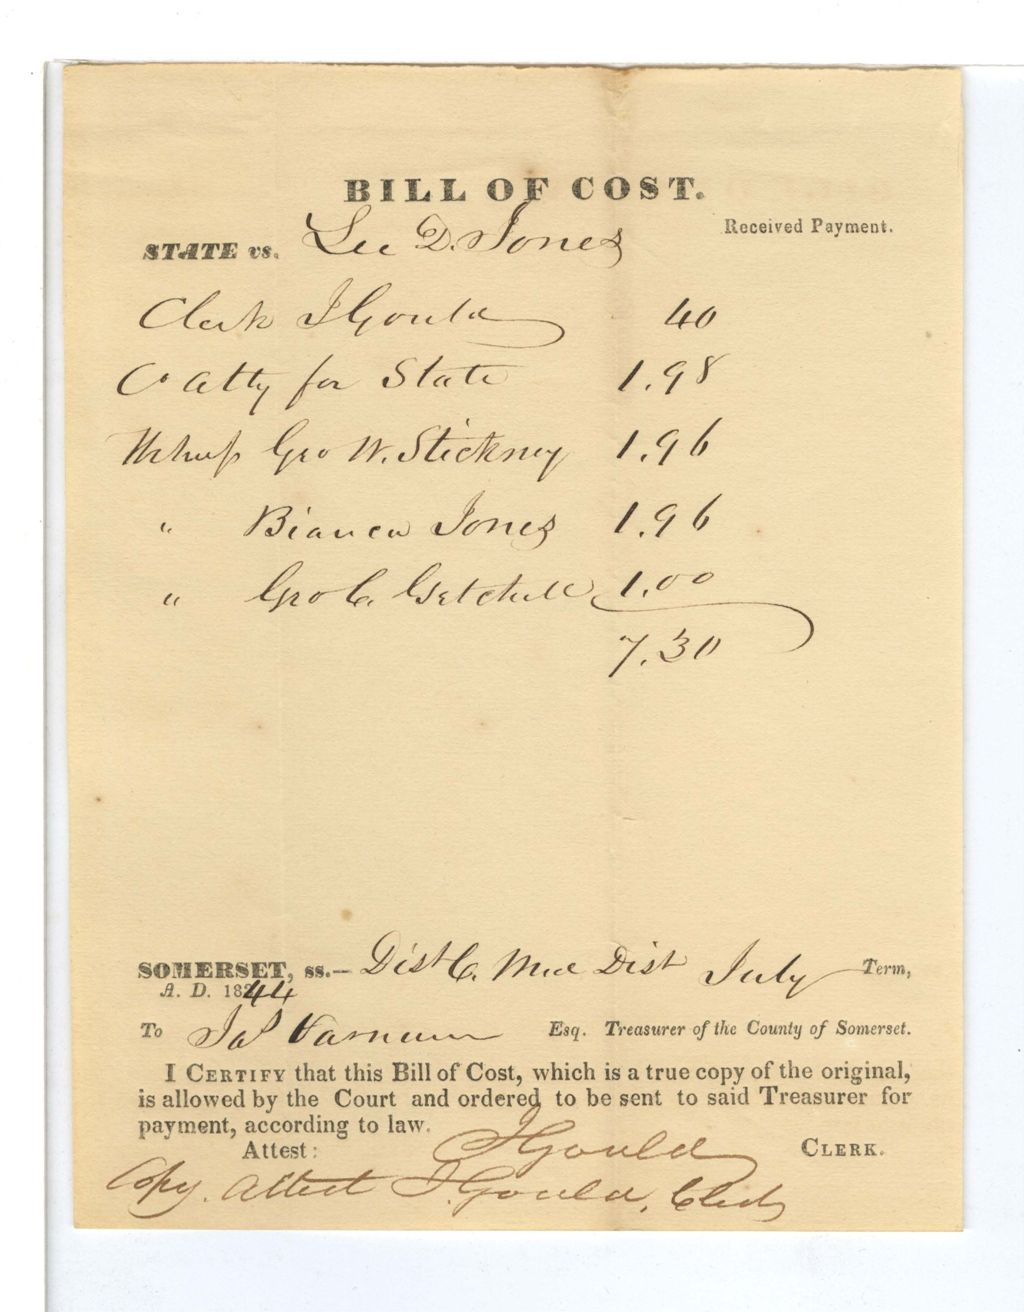 BILL OF COST.
Received Payment.
STATE vs. Lee D. Jones
Clerk J Gould 40
Co Atty for State 1.98
Geo W. Stickney 1.96
" Bianca Jones 1.96
" Geo C. Getchell 1.00
7.30
SOMERSET, ss.— Dist C. Mid Dist July Term,
A. D. 1844
To Jas Varnum Esq. Treasurer of the County of Somerset.
I CERTIFY that this Bill of Cost, which is a true copy of the original,
is allowed by the Court and ordered to be sent to said Treasurer for
payment, according to law.
Attest: J Gould CLERK.
Copy. Attest J. Gould, Clerk